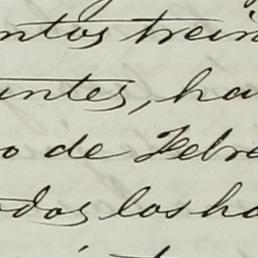 ntos trein
untes, ha
o de Febre
odos los ha